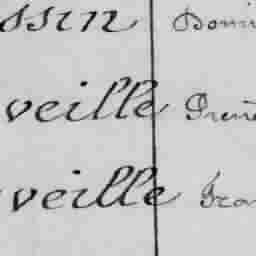 ssin Domi
veille Prene
veille Fra